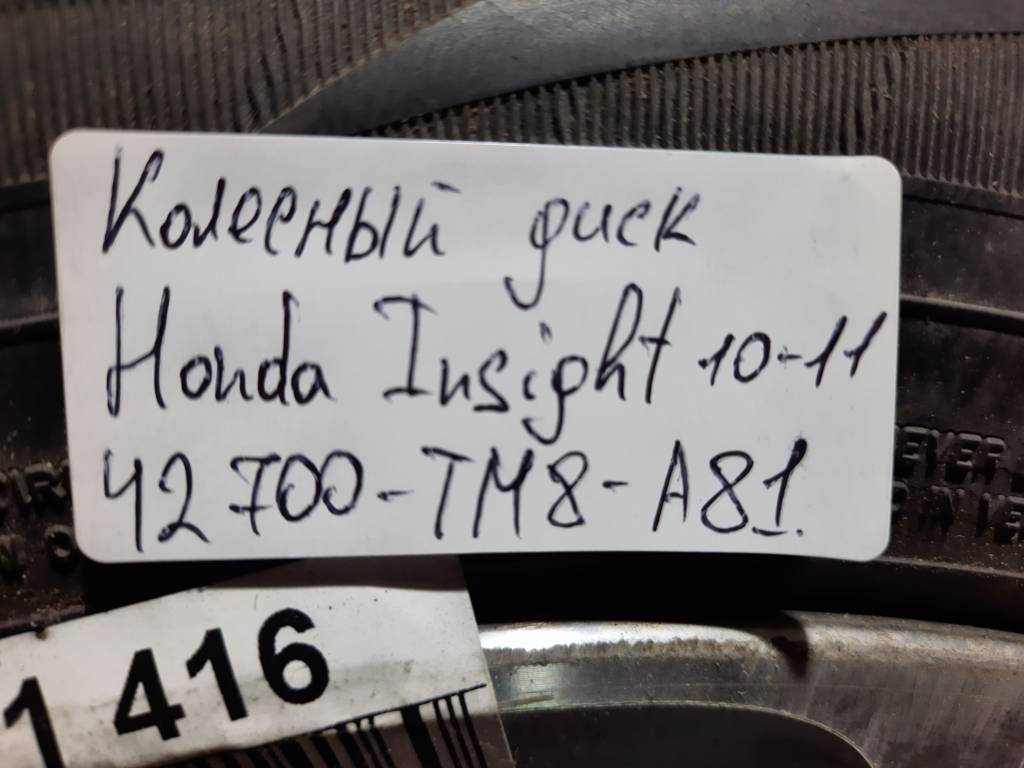 Колесный диск
Honda Insight 10-11
42700-TM8-A81
EVER
1 416